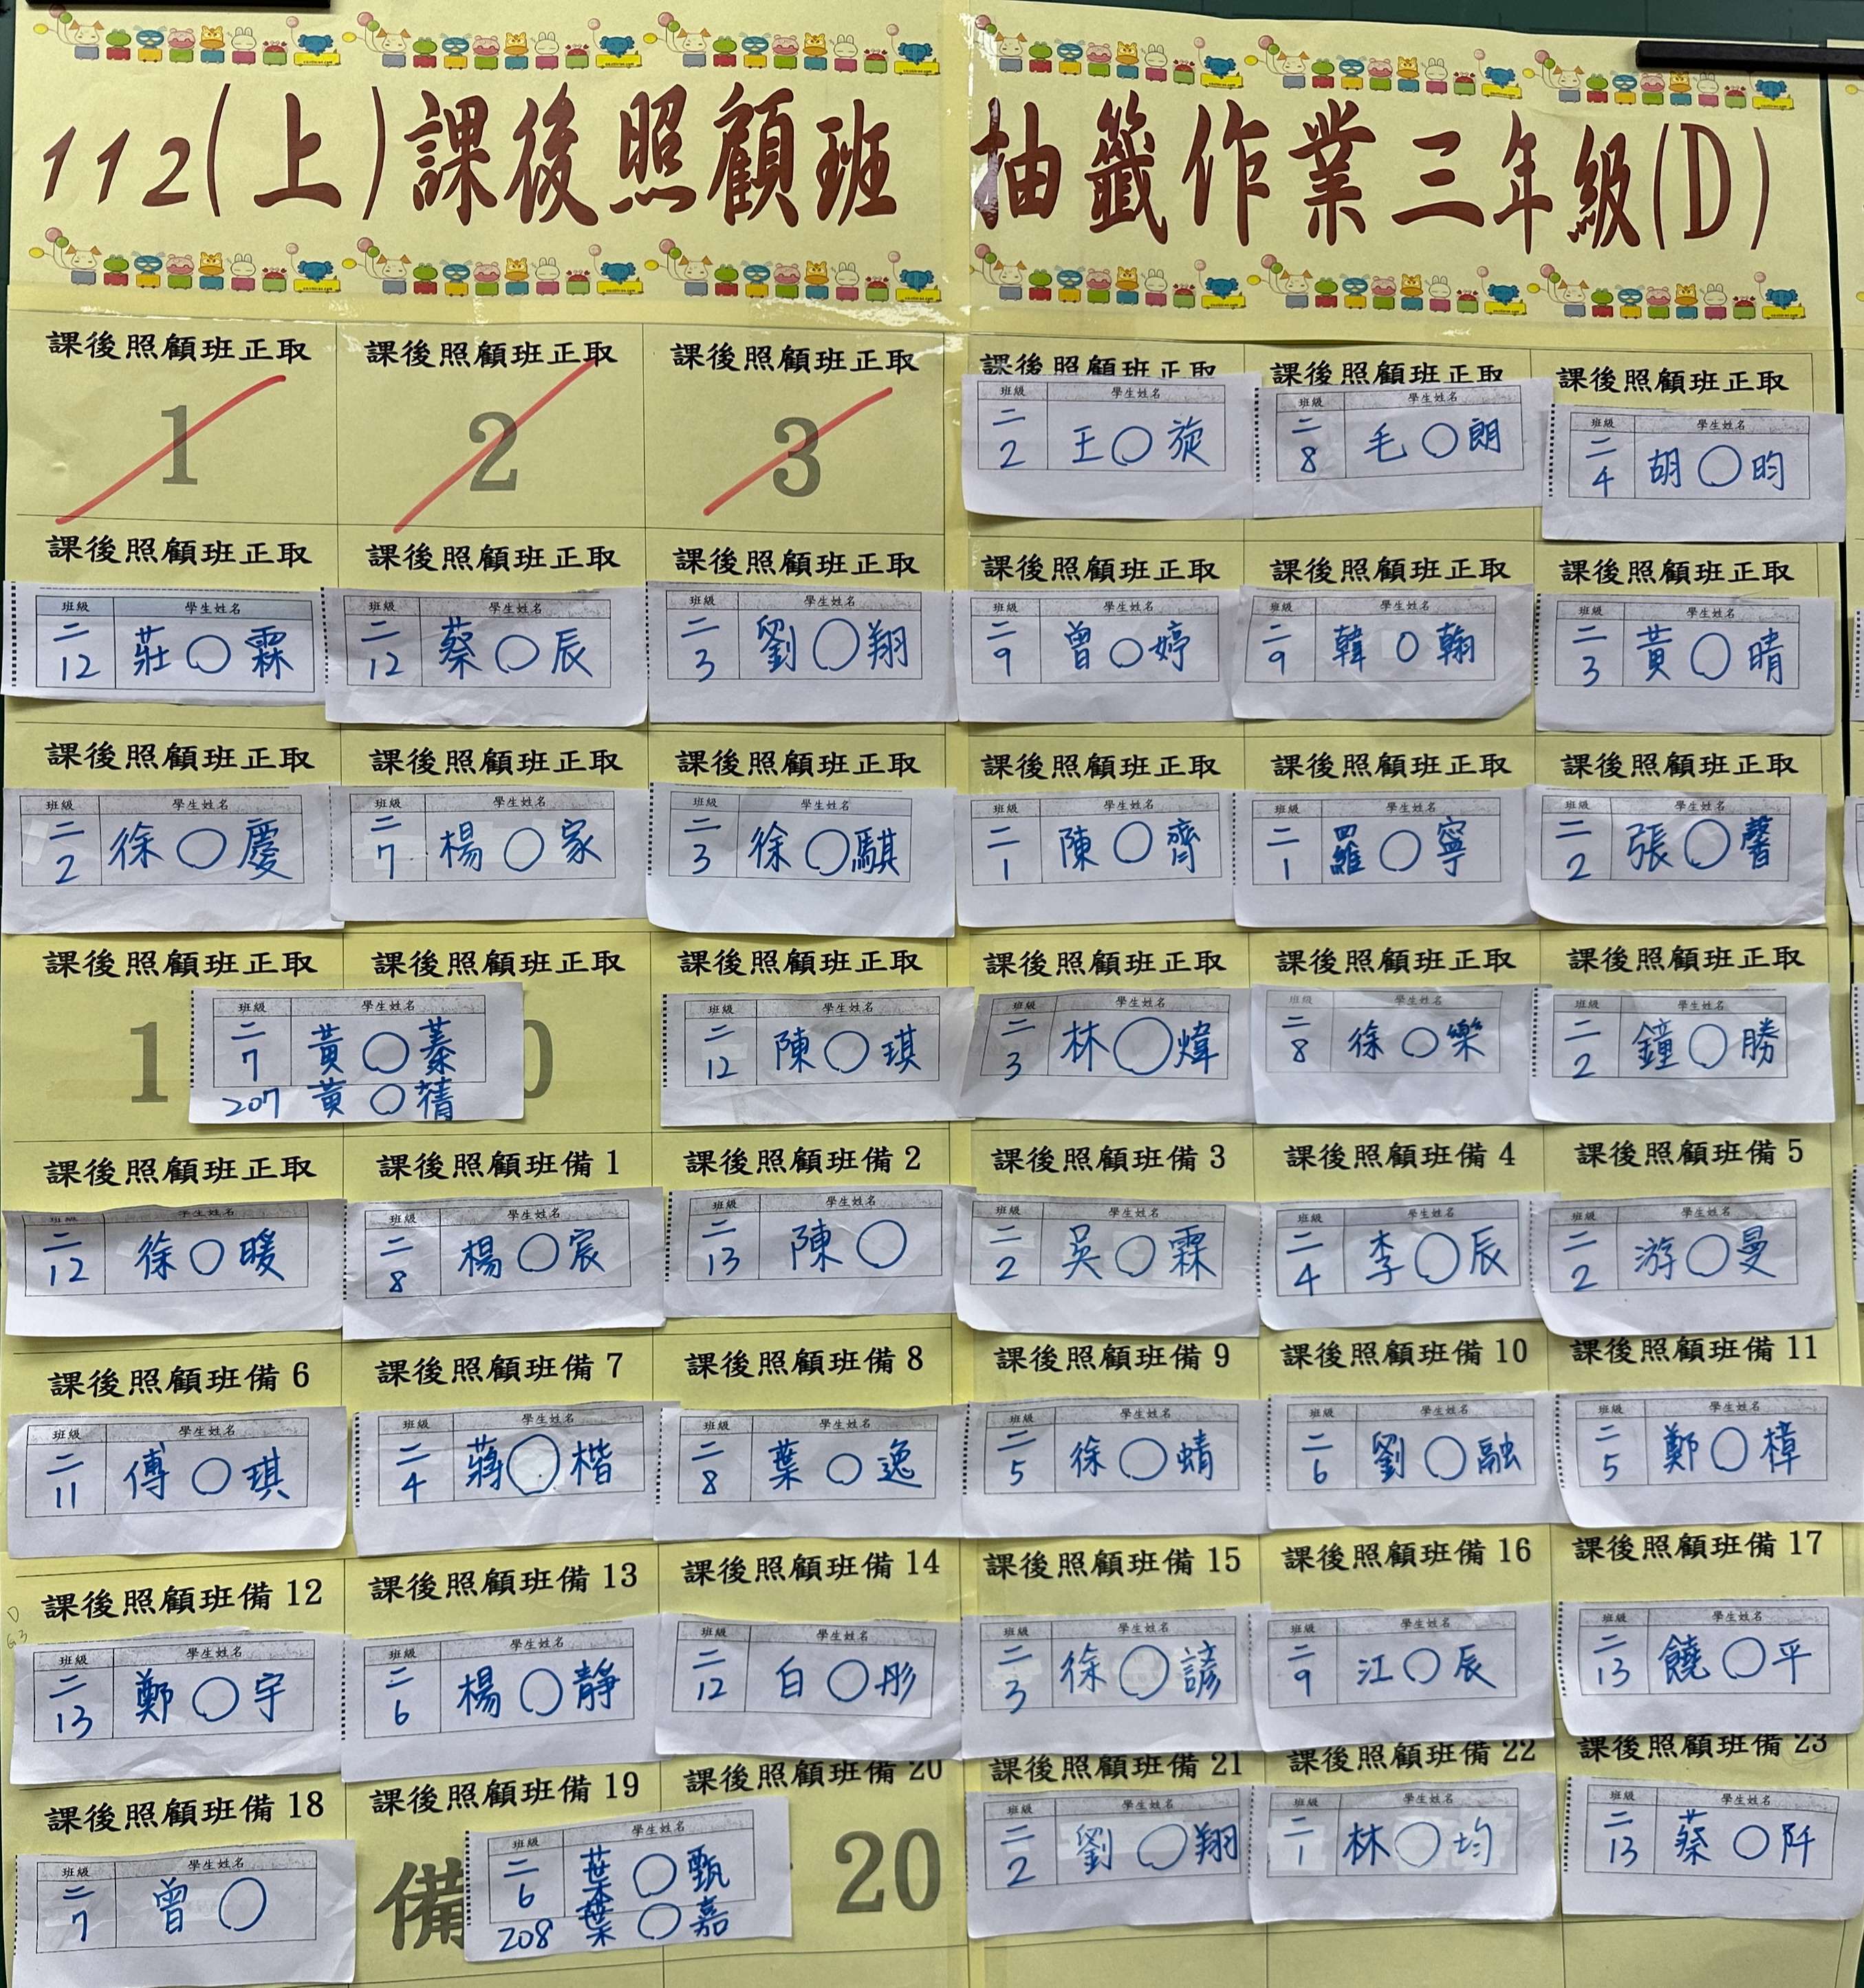 112(上)課後照顧班 抽籤作業三年級(D)
課後照顧班正取 課後照顧班正取 課後照顧班正取 課後照顧班正取 課後照顧班正取 課後照顧班正取
1 2 3
班級 學生姓名 班級 學生姓名 班級 學生姓名
二2 王〇旋 二8 毛〇朗 二4 胡〇昀
課後照顧班正取 課後照顧班正取 課後照顧班正取 課後照顧班正取 課後照顧班正取 課後照顧班正取
班級 學生姓名 班級 學生姓名 班級 學生姓名 班級 學生姓名 班級 學生姓名 班級 學生姓名
二12 莊〇霖 二12 蔡〇辰 二3 劉〇翔 二9 曾〇婷 二9 韓〇翰 二3 黃〇晴
課後照顧班正取 課後照顧班正取 課後照顧班正取 課後照顧班正取 課後照顧班正取 課後照顧班正取
班級 學生姓名 班級 學生姓名 班級 學生姓名 班級 學生姓名 班級 學生姓名 班級 學生姓名
二2 徐〇慶 二7 楊〇家 二3 徐〇騏 二1 陳〇齊 二1 羅〇寧 二2 張〇馨
課後照顧班正取 課後照顧班正取 課後照顧班正取 課後照顧班正取 課後照顧班正取 課後照顧班正取
班級 學生姓名 班級 學生姓名 班級 學生姓名 班級 學生姓名 班級 學生姓名
1 二7 黃〇蓁 0 二12 陳〇琪 二3 林〇煒 二8 徐〇樂 二2 鐘〇勝
207 黃〇蒨
課後照顧班正取 課後照顧班備1 課後照顧班備2 課後照顧班備3 課後照顧班備4 課後照顧班備5
班級 學生姓名 班級 學生姓名 班級 學生姓名 班級 學生姓名 班級 學生姓名 班級 學生姓名
二12 徐〇暖 二8 楊〇宸 二13 陳〇 二2 吳〇霖 二4 李〇辰 二2 游〇曼
課後照顧班備6 課後照顧班備7 課後照顧班備8 課後照顧班備9 課後照顧班備10 課後照顧班備11
班級 學生姓名 班級 學生姓名 班級 學生姓名 班級 學生姓名 班級 學生姓名 班級 學生姓名
二11 傅〇琪 二4 蔣〇楷 二8 葉〇逸 二5 徐〇蜻 二6 劉〇融 二5 鄭〇樟
課後照顧班備12 課後照顧班備13 課後照顧班備14 課後照顧班備15 課後照顧班備16 課後照顧班備17
班級 學生姓名 班級 學生姓名 班級 學生姓名 班級 學生姓名 班級 學生姓名 班級 學生姓名
二13 鄭〇宇 二6 楊〇靜 二12 白〇彤 二3 徐〇諺 二9 江〇辰 二13 饒〇平
課後照顧班備18 課後照顧班備19 課後照顧班備20 課後照顧班備21 課後照顧班備22 課後照顧班備23
班級 學生姓名 班級 學生姓名 班級 學生姓名 班級 學生姓名 班級 學生姓名
二7 曾〇 備 二6 葉〇甄 20 二2 劉〇翔 二1 林〇均 二13 蔡〇阡
208 葉〇嘉